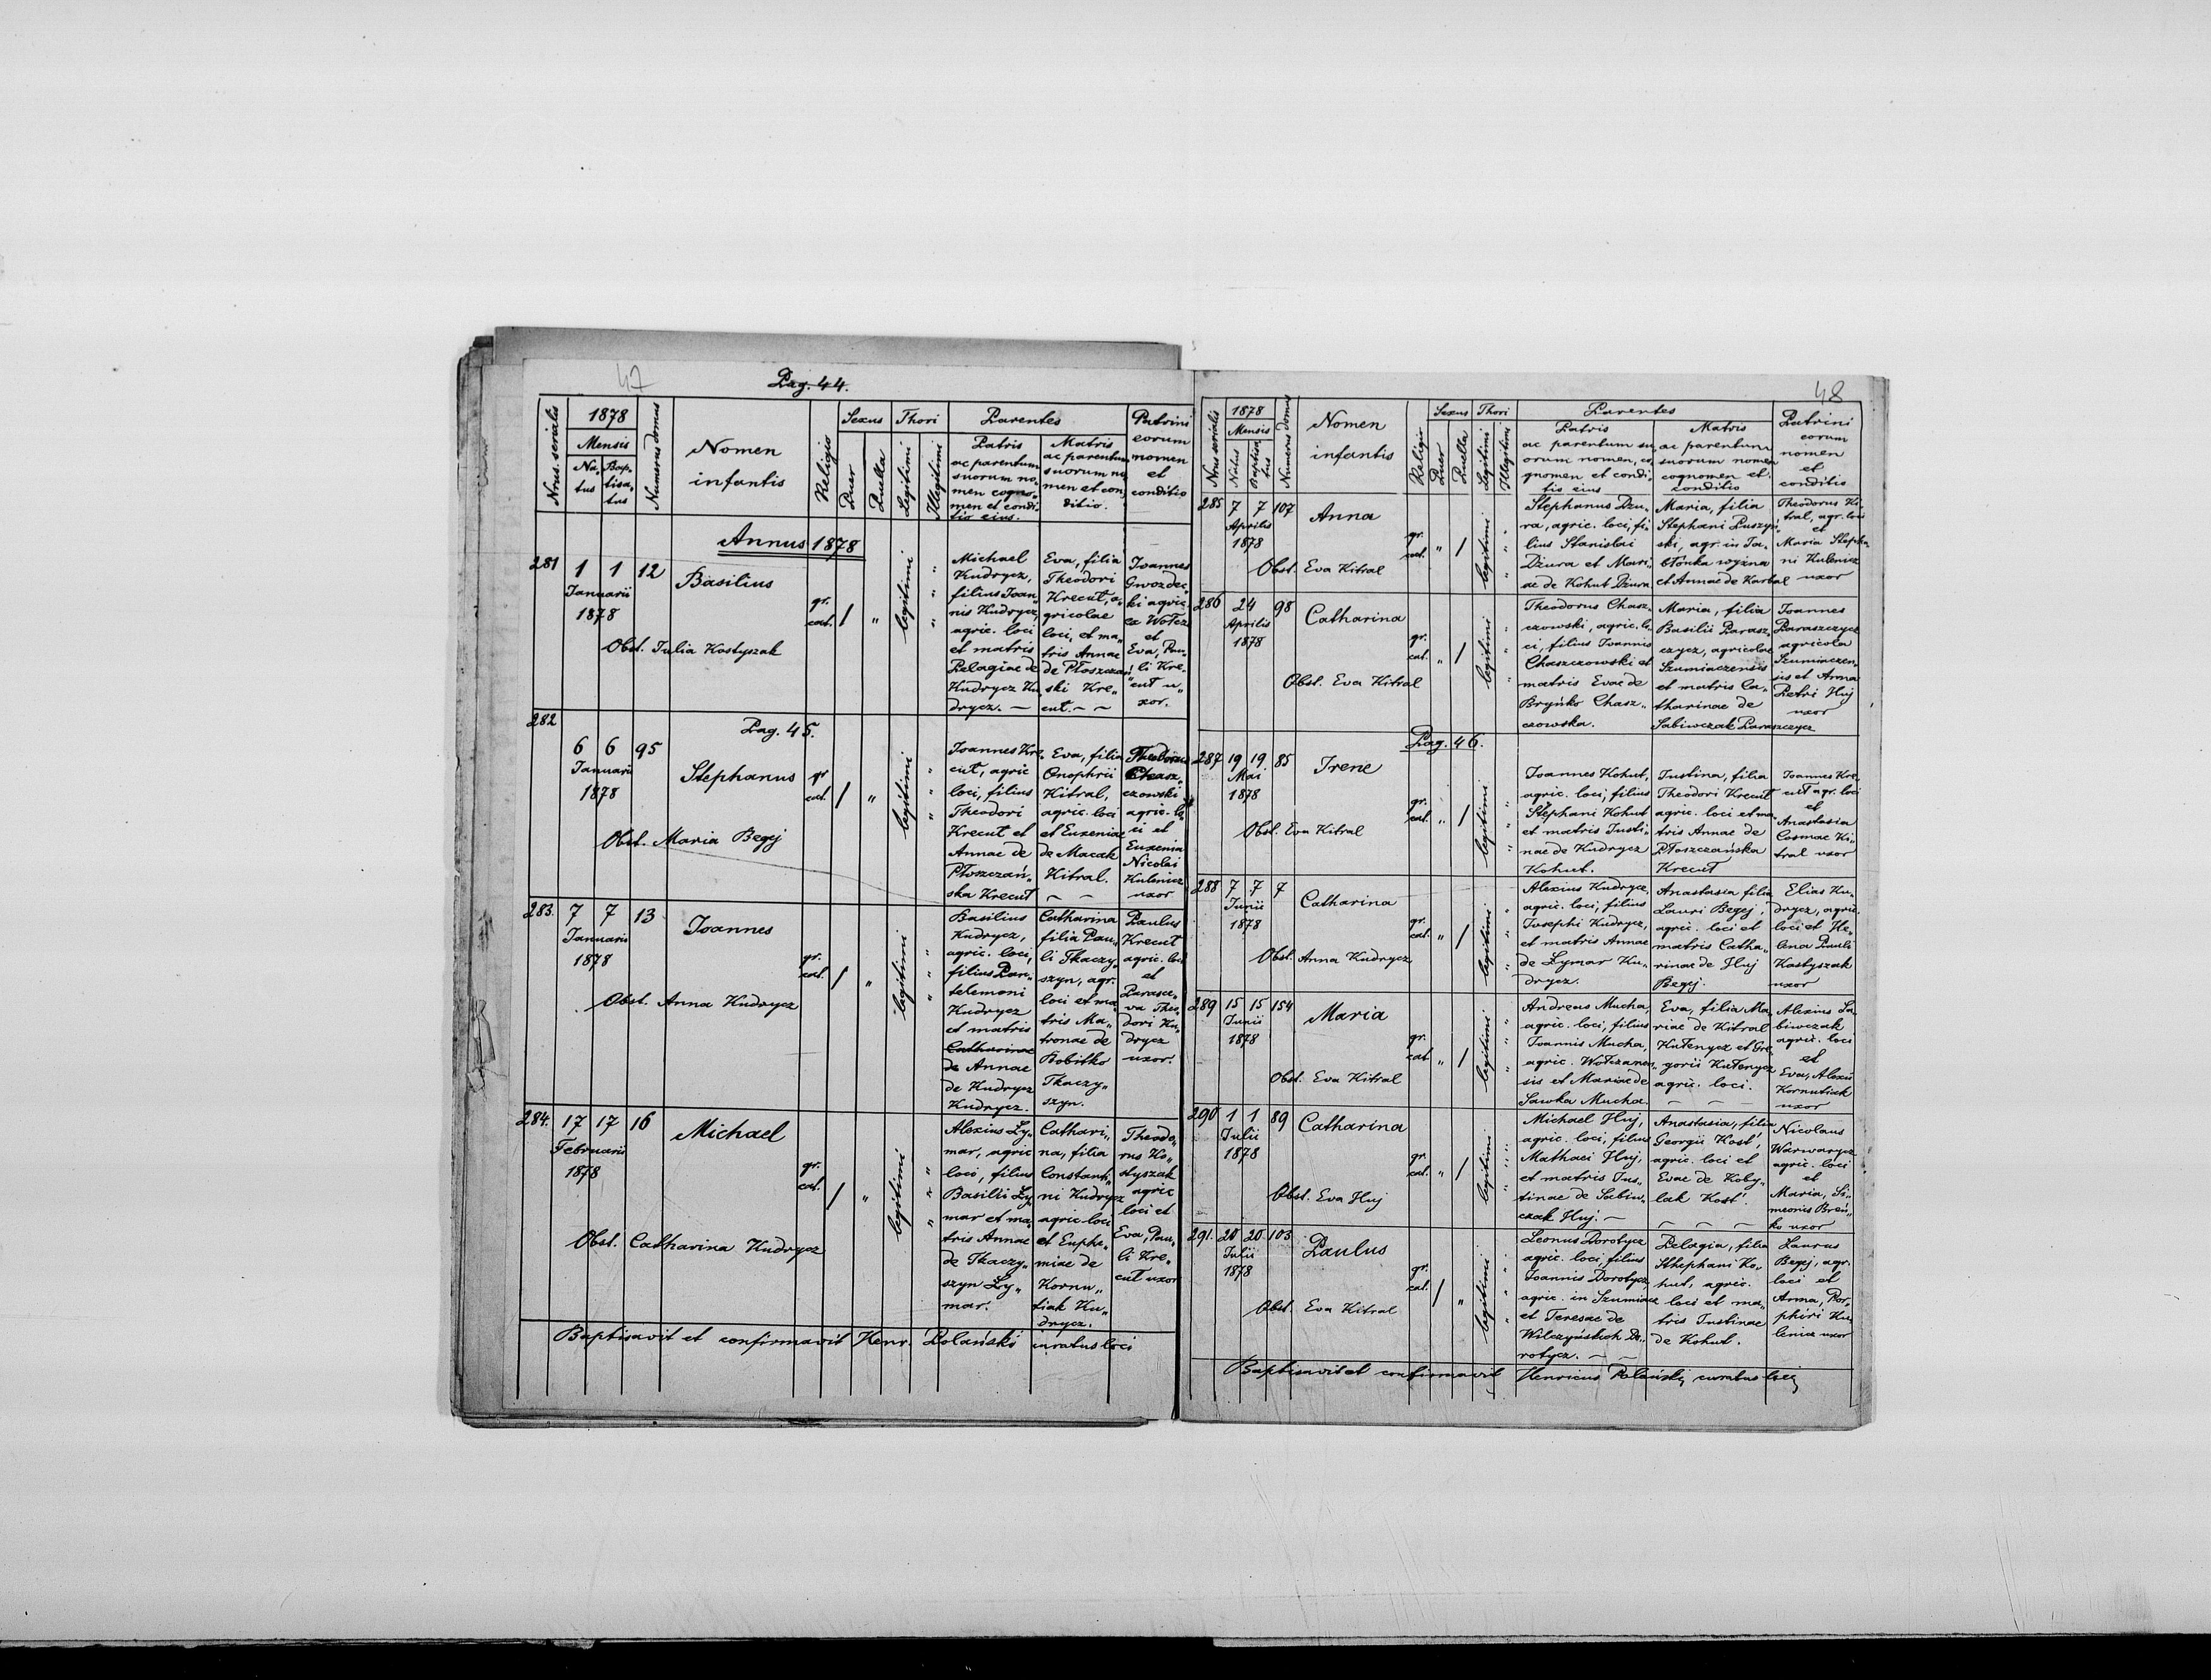 47
Pag. 44.
Nrus. serialis
1878
Mensis
Na-
tus
Bap-
tisa-
tus
Numerus domus
Nomen
infantis
Religio
Sexus
Puer
Puella
Thori
Legitimi
Illegitimi
Parentes
Patris
ac parentum
suorum no-
men cogno-
men et condi-
tio eius.
Matris
ac parentum
suorum no-
men et con-
ditio.
Patrini
eorum
nomen
et
conditio
Annus 1878
281
1 1 12
Januarii
1878
Basilius
Obst. Julia Kostyszak
gr.
cat.
/ "
legitimi
Michael
Kudrycz,
filius Joan-
nis Kudrycz,
agric. loci
et matris
Pelagiae de
Kudrycz Ku-
drycz. —
Eva, filia
Theodori
Krecut, a-
gricolae
loci, et ma-
tris Annae
de Płoszczań-
ski Kre-
cut. — —
Joannes
Gwozdec-
ki agric.
ex Wołcz
et
Eva, Pau-
li Kre-
cut u-
xor.
282
Pag. 45.
6 6 95
Januarii
1878
Stephanus
Obst. Maria Begej
gr.
cat.
/ "
legitimi
Joannes Kre-
cut, agric
loci, filius
Theodori
Krecut et
Annae de
Płoszczań-
ska Krecut
Eva, filia
Onophrii
Kitral,
agric. loci
et Euxeniae
de Macak
Kitral.
— —
Theodorus
Chasz-
czowski
agric. lo-
ci et
Euxenia
Nicolai
Kulenicz
uxor
283.
7 7 13
Januarii
1878
Joannes
Obst. Anna Kudrycz
gr.
cat.
/ "
legitimi
Basilius
Kudrycz,
agric. loci,
filius Pan-
telemoni
Kudrycz
et matris
Catharinae
de Annae
de Kudrycz
Kudrycz.
Catharina
filia Pau-
li Tkaczy-
szyn, agr.
loci et ma-
tris Ma-
tronae de
Bobitko
Tkaczy-
szyn.
Paulus
Krecut
agric. loci
et
Parasce-
va Theo-
dori Ku-
drycz
uxor.
284.
17 17 16
Februarii
1878
Michael
Obst. Catharina Kudrycz
gr.
cat.
/ "
legitimi
Alexius Ly-
mar, agric
loci, filius
Basilii Ly-
mar et ma-
tris Annae
de Tkaczy-
szyn Ly-
mar.
Cathari-
na, filia
Constanti-
ni Kudrycz
agric loci
et Euphe-
miae de
Kornu-
tiak Ku-
drycz.
Theodo-
rus Ko-
styszak
agric
loci et
Eva, Pau-
li Kre-
cut uxor
Baptisavit et confirmavit Henr. Polański curatus loci
48
Nrus serialis
1878
Mensis
Natus
Baptisa-
tus
Numerus domus
Nomen
infantis
Religio
Sexus
Puer
Puella
Thori
Legitimi
Illegitimi
Parentes
Patris
ac parentum su-
orum nomen, co-
gnomen et condi-
tio eius
Matris
ac parentum
suorum nomen
cognomen et
conditio
Patrini
eorum
nomen
et
conditio
285
7 7 107
Aprilis
1878
Anna
Obst. Eva Kitral
gr.
cat.
" /
legitimi
Stephanus Dzu-
ra, agric. loci, fi-
lius Stanislai
Dzura et Mari-
ae de Kohut Dzura
Maria, filia
Stephani Puszy-
ski, agr. in Ja-
błonka wyżna
et Annae de Karbal
Theodorus Ki-
tral, agr. loci
et
Maria Stepha-
ni Kulenicz
uxor
286
24 98
Aprilis
1878
Catharina
Obst. Eva Kitral
gr.
cat.
" /
legitimi
Theodorus Chasz-
czowski, agric. lo-
ci, filius Joannis
Chaszczowski et
matris Evae de
Bryńko Chasz-
czowska.
Maria, filia
Basilii Parasz-
czycz, agricolae
Szumiaczensis
et matris Ca-
tharinae de
Sabiwczak Paraszczycz
Joannes
Paraszczycz
agricola
Szumiaczen-
sis et Anna
Petri Huj
uxor
Pag. 46.
287
19 19 85
Mai
1878
Irene
Obst. Eva Kitral
gr.
cat.
" /
legitimi
Joannes Kohut,
agric. loci, filius
Stephani Kohut
et matris Justi-
nae de Kudrycz
Kohut.
Justina, filia
Theodori Krecut
agric. loci et ma-
tris Annae de
Płoszczańska
Krecut
Joannes Kre-
cut agr. loci
et
Anastasia
Cosmae Ki-
tral uxor
288
7 7 7
Junii
1878
Catharina
Obst. Anna Kudrycz
gr.
cat.
" /
legitimi
Alexius Kudrycz,
agric. loci, filius
Josephi Kudrycz,
et matris Annae
de Lymar Ku-
drycz.
Anastasia filia
Lauri Begej,
agric. loci et
matris Catha-
rinae de Huj
Begej.
Elias Ku-
drycz, agric.
loci et He-
lena Pauli
Kostyszak
uxor
289
15 15 154
Junii
1878
Maria
Obst. Eva Kitral
gr.
cat
" /
legitimi
Andreas Mucha,
agric. loci, filius
Joannis Mucha,
agric. Wołczanen-
sis et Mariae de
Sawka Mucha.
Eva, filia Ma-
riae de Kitral
Kułenycz et Gre-
gorii Kułenycz
agric. loci.
— — —
Alexius Sa-
biwczak
agric. loci
et
Eva, Alexii
Kornutiak
uxor
290
1 1 89
Julii
1878
Catharina
Obst. Eva Huj
gr.
cat.
" /
legitimi
Michael Huj,
agric. loci, filius
Mathaei Huj,
et matris Jus-
tinae de Sabiw-
czak Huj. —
Anastasia, filia
Georgii Kost',
agric. loci et
Evae de Koby-
lak Kost'.
— — —
Nicolaus
Warwarycz
agric. loci
et
Maria, Si-
meonis Breń-
ko uxor
291.
20 20 103
Julii
1878
Paulus
Obst. Eva Kitral
gr.
cat.
/ "
legitimi
Leonus Dorotycz
agric. loci, filius
Joannis Dorotycz,
agric. in Szumiacz
et Teresae de
Wilczyńskich Do-
rotycz. — —
Pelagia, filia
Stephani Ko-
hut, agric.
loci et ma-
tris Justinae
de Kohut.
Laurus
Begej, agr.
loci et
Anna, Por-
phiri Ku-
lenicz uxor
Baptisavit et confirmavit Henricus Polański, curatus loci